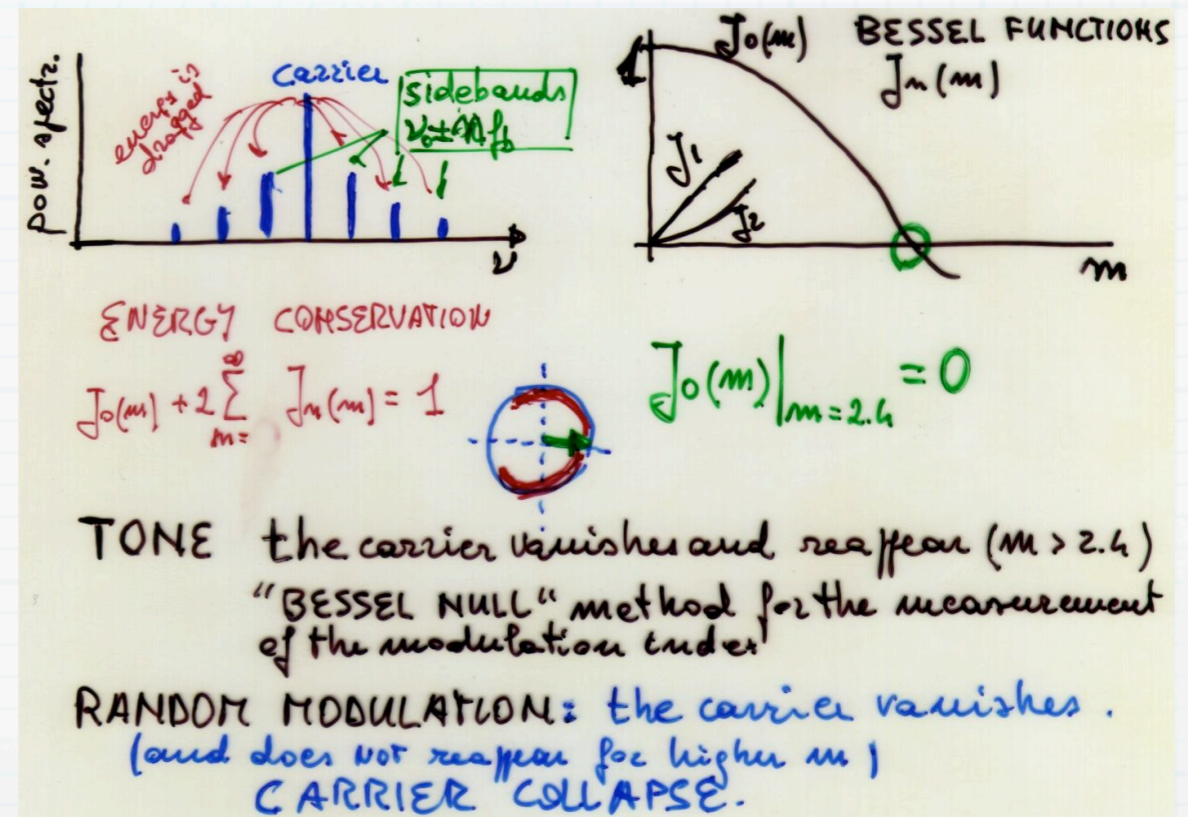 pow. spectr.
energy is
dragged
carrier
sidebands
ν₀ ± n f_b
ν
1
J₀(m)
BESSEL FUNCTIONS
Jₙ(m)
J₁
J₂
m
ENERGY CONSERVATION
J₀(m) + 2 ∑_{m=}^{∞} Jₙ(m) = 1
J₀(m)|_{m=2.4} = 0
TONE the carrier vanishes and reappear (m > 2.4)
"BESSEL NULL" method for the measurement
of the modulation index
RANDOM MODULATION: the carrier vanishes.
(and does NOT reappear for higher m)
CARRIER COLLAPSE.